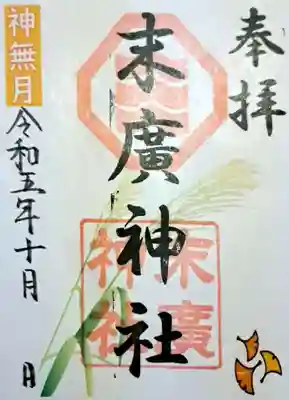 奉拝
末廣神社
末廣神社
神無月
令和五年十月
日